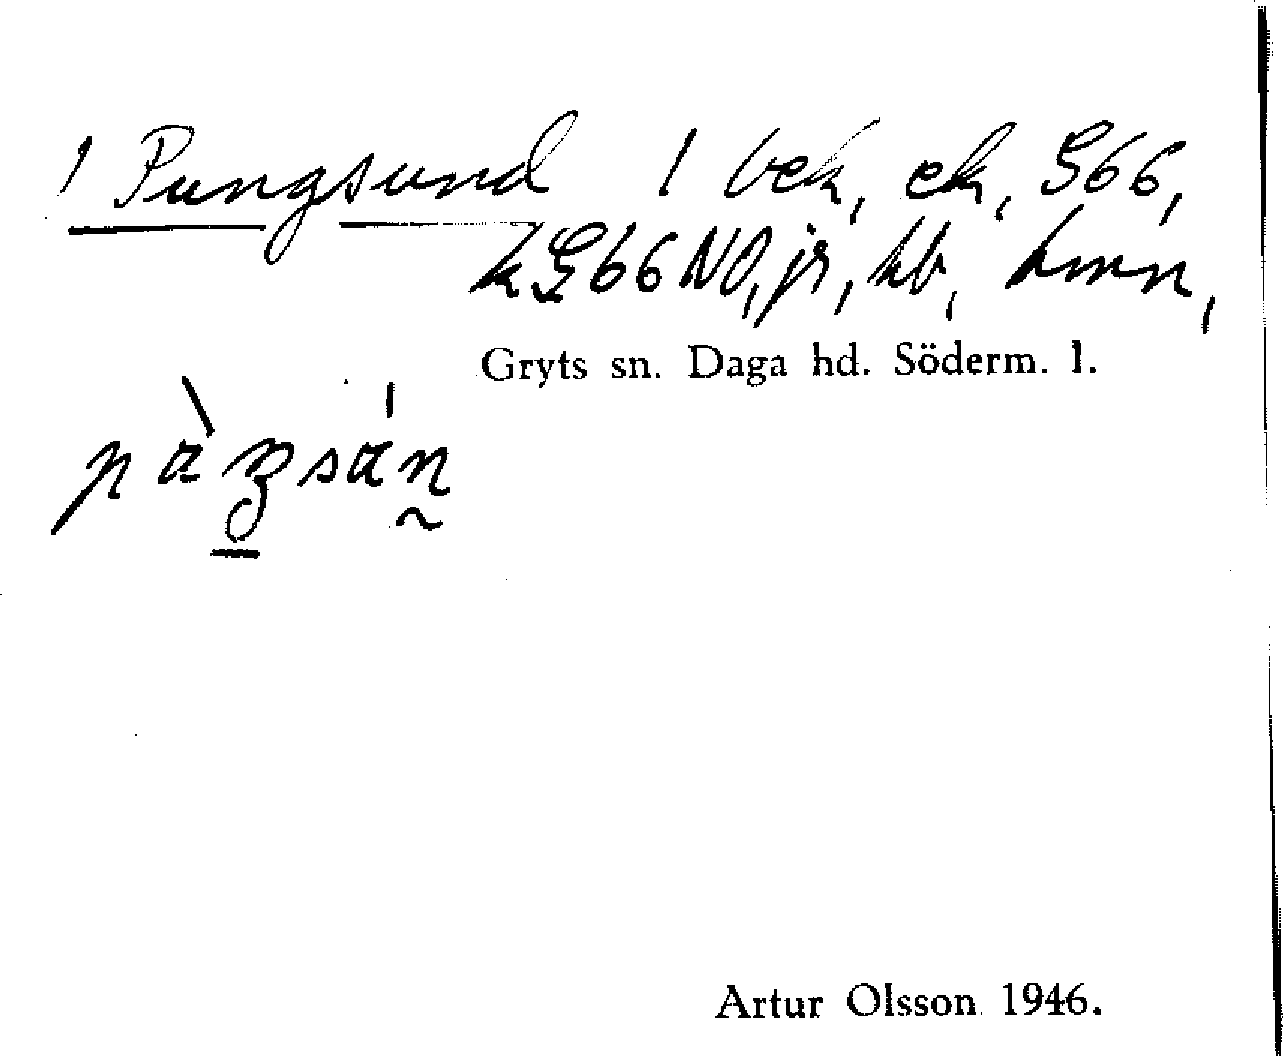 1 Pungsund 1 bek, ek, G66,
k G66 NO, jr, hb, hmn,
Gryts sn. Daga hd. Söderm. l.
Artur Olsson 1946.